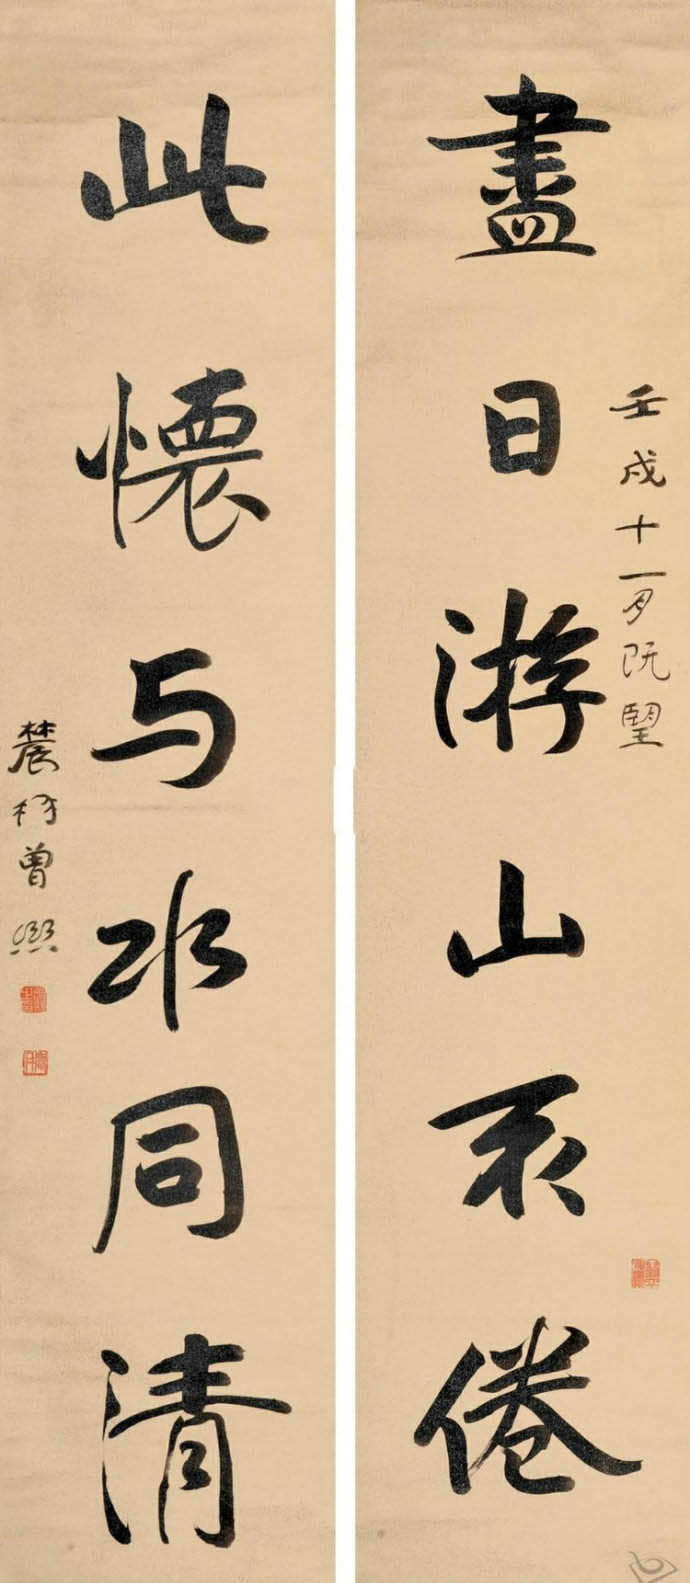 盡日游山不倦
壬戌十一月既望
此懷与水同清
農髯曾熙